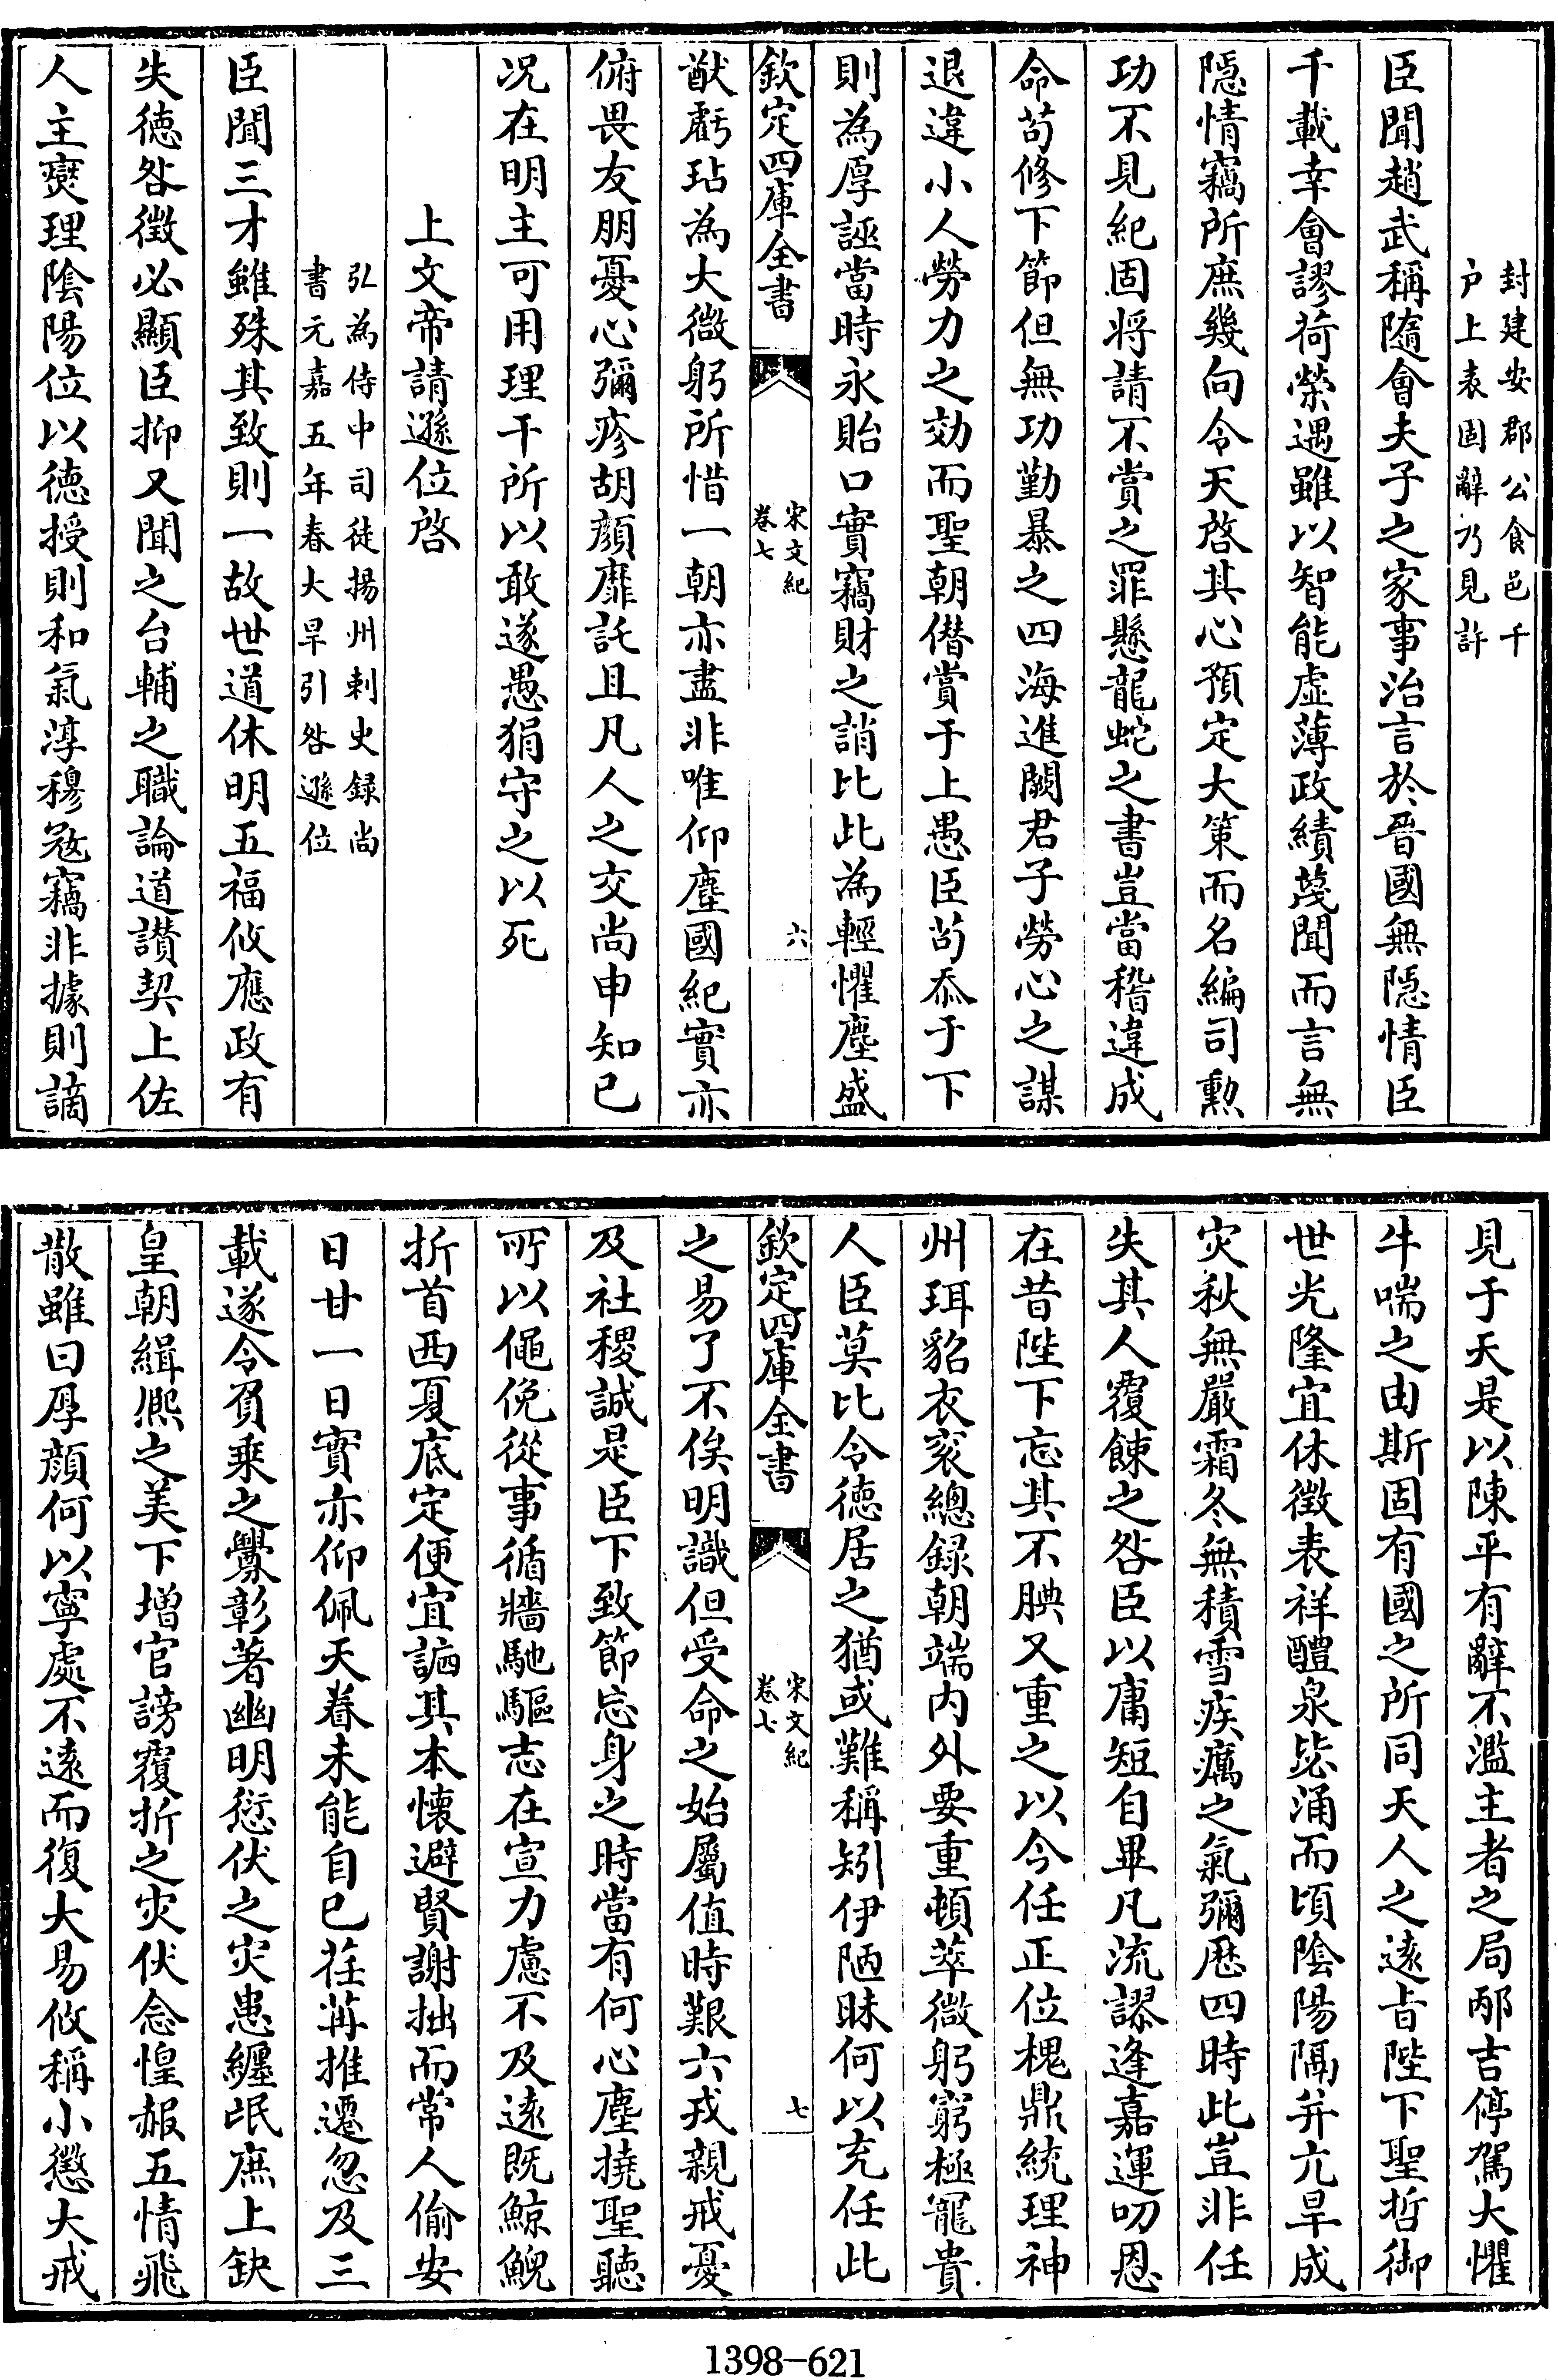 封建安郡公食邑千
户上表固辭乃見許
臣聞趙武稱隨會夫子之家事治言於晉國無隠情臣
千載幸會謬荷榮遇雖以智能虚薄政績蔑聞而言無
隠情竊所庶幾向令天啓其心預定大策而名編司勲
功不見紀固將請不賞之罪懸龍蛇之書豈當稽違成
命苟修下節但無功勤暴之四海進闕君子勞心之謀
退違小人勞力之効而聖朝僭賞于上愚臣苟忝于下
則為厚誣當時永貽口實竊財之誚比此為輕懼塵盛
欽定四庫全書
宋文紀
卷七
六
猷虧玷為大微躬所惜一朝亦盡非唯仰塵國紀實亦
俯畏友朋憂心彌疹胡顔靡託且凡人之交尚申知已
况在明主可用理干所以敢遂愚狷守之以死
上文帝請遜位啓
弘為侍中司徒揚州刺史録尚
書元嘉五年春大旱引咎遜位
臣聞三才雖殊其致則一故世道休明五福攸應政有
失徳咎徵必顯臣抑又聞之台輔之職論道讃契上佐
人主爕理陰陽位以徳授則和氣淳穆宼竊非據則謫
見于天是以陳平有辭不濫主者之局邴吉停駕大懼
牛喘之由斯固有國之所同天人之逺㫖陛下聖哲御
世光隆宜休徵表祥醴泉毖涌而頃陰陽隔并亢旱成
灾秋無嚴霜冬無積雪疾癘之氣彌厯四時此豈非任
失其人覆餗之咎臣以庸短自畢凡流謬逢嘉運叨恩
在昔陛下忘其不腆又重之以今任正位槐鼎統理神
州珥貂衣衮總録朝端内外要重頓萃微躬窮極寵貴
人臣莫比令徳居之猶或難稱矧伊陋昧何以充任此
欽定四庫全書
宋文紀
卷七
七
之易了不俟明識但受命之始屬值時艱六戎親戒憂
及社稷誠是臣下致節忘身之時當有何心塵撓聖聽
所以僶俛從事循牆馳驅志在宣力慮不及逺既鯨鯢
折首西夏底定便宜訴其本懐避賢謝拙而常人偷安
日甘一日實亦仰佩天眷未能自已荏苒推遷忽及三
載遂令負乗之釁彰著幽明愆伏之灾患纒氓庶上缺
皇朝緝熙之美下增官謗覆折之灾伏念惶赧五情飛
散雖曰厚顔何以寧處不逺而復大易攸稱小懲大戒
1398-621